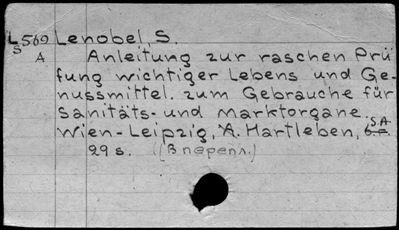 L 569 Lenobel, S.
S
A Anleitung zur raschen Prü
fung wichtiger Lebens und Ge-
nussmittel. zum Gebrauche für
Sanitäts- und Marktorgane.
Wien-Leipzig, A. Hartleben, S.A.
29 s. (В перепл.)